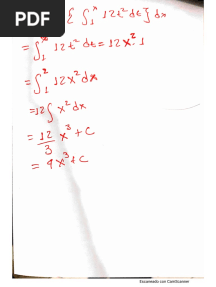 PDF
{ ∫₁ˣ 12t² dt } dx
= ∫₁ˣ 12t² dt = 12x². 1
= ∫₁² 12x² dx
= 12 ∫ x² dx
= 12/3 x³ + C
= 4x³ + C
Escaneado con CamScanner